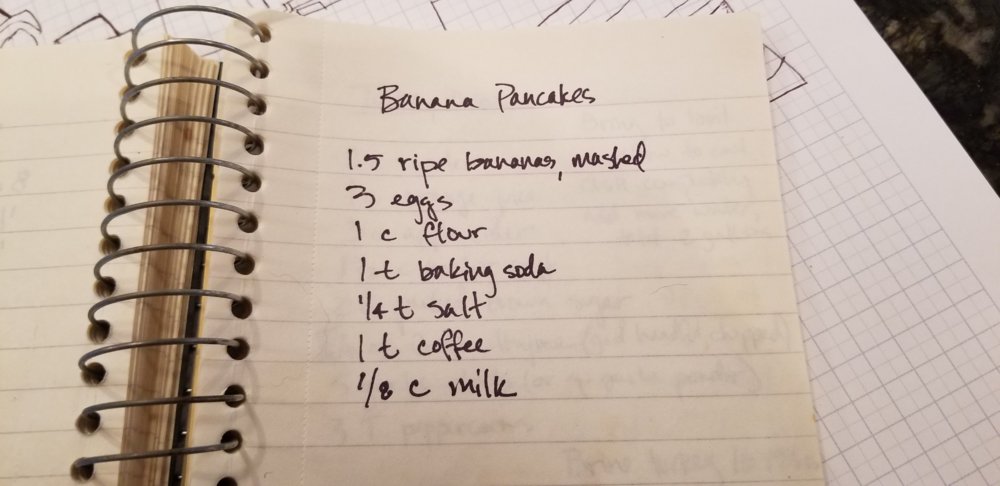 Banana Pancakes
1.5 ripe bananas, mashed
3 eggs
1 c flour
1 t baking soda
1/4 t salt
1 t coffee
1/8 c milk